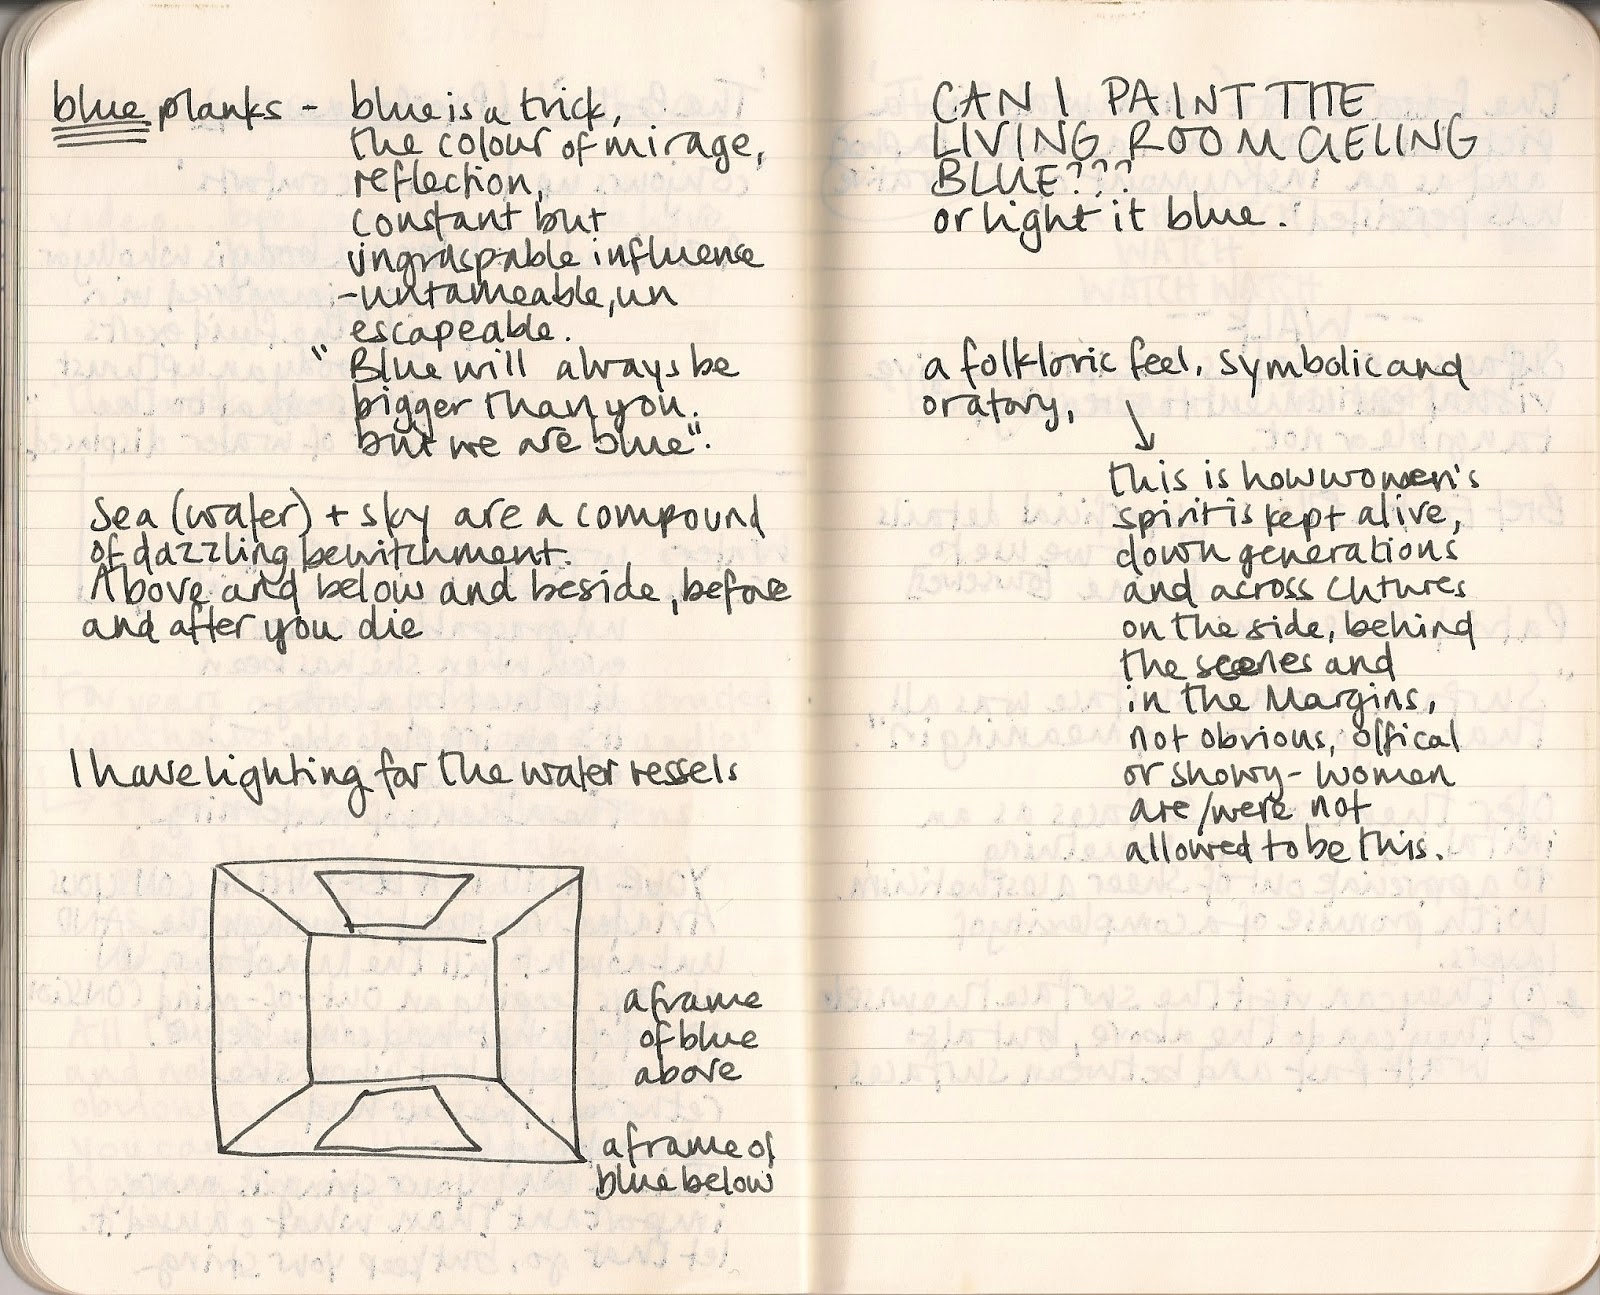 blue planks - blue is a trick,
the colour of mirage,
reflection,
constant but
ungraspable influence
-untameable, un
escapeable.
"Blue will always be
bigger than you.
but we are blue".
Sea (water) + sky are a compound
of dazzling bewitchment.
Above and below and beside, before
and after you die
I have lighting for the water vessels
a frame
of blue
above
a frame of
blue below
CAN I PAINT THE
LIVING ROOM CIELING
BLUE???
or light it blue.
a folkloric feel, symbolic and
oratory,
this is how women's
spirit is kept alive,
down generations
and across clutures
on the side, behind
the scenes and
in the Margins,
not obvious, offical
or showy - women
are/were not
allowed to be this.